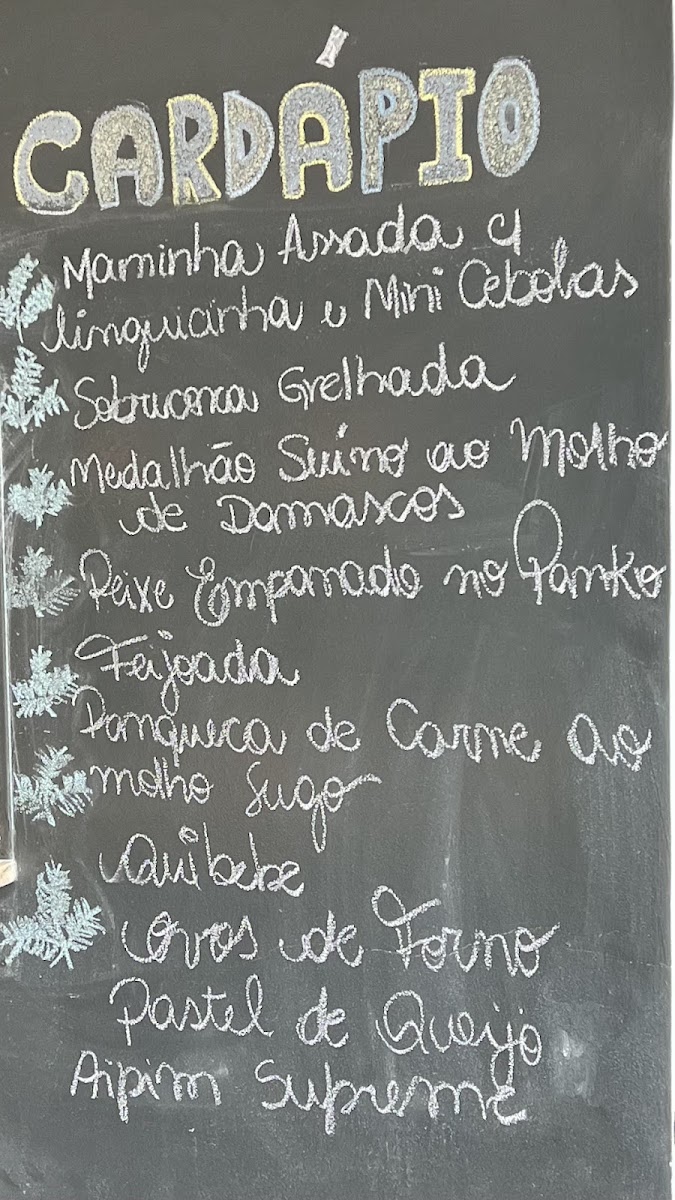 CARDÁPIO
Maminha Assada c/
linguicinha e Mini Cebolas
Sobrecoxa Grelhada
Medalhão Suíno ao Molho
de Damascos
Peixe Empanado no Panko
Feijoada
Panqueca de Carne ao
molho Sugo
Quibebe
Ovos de Forno
Pastel de Queijo
Aipim Supreme